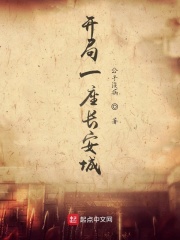 开局一座长安城
公子
著
起点中文网